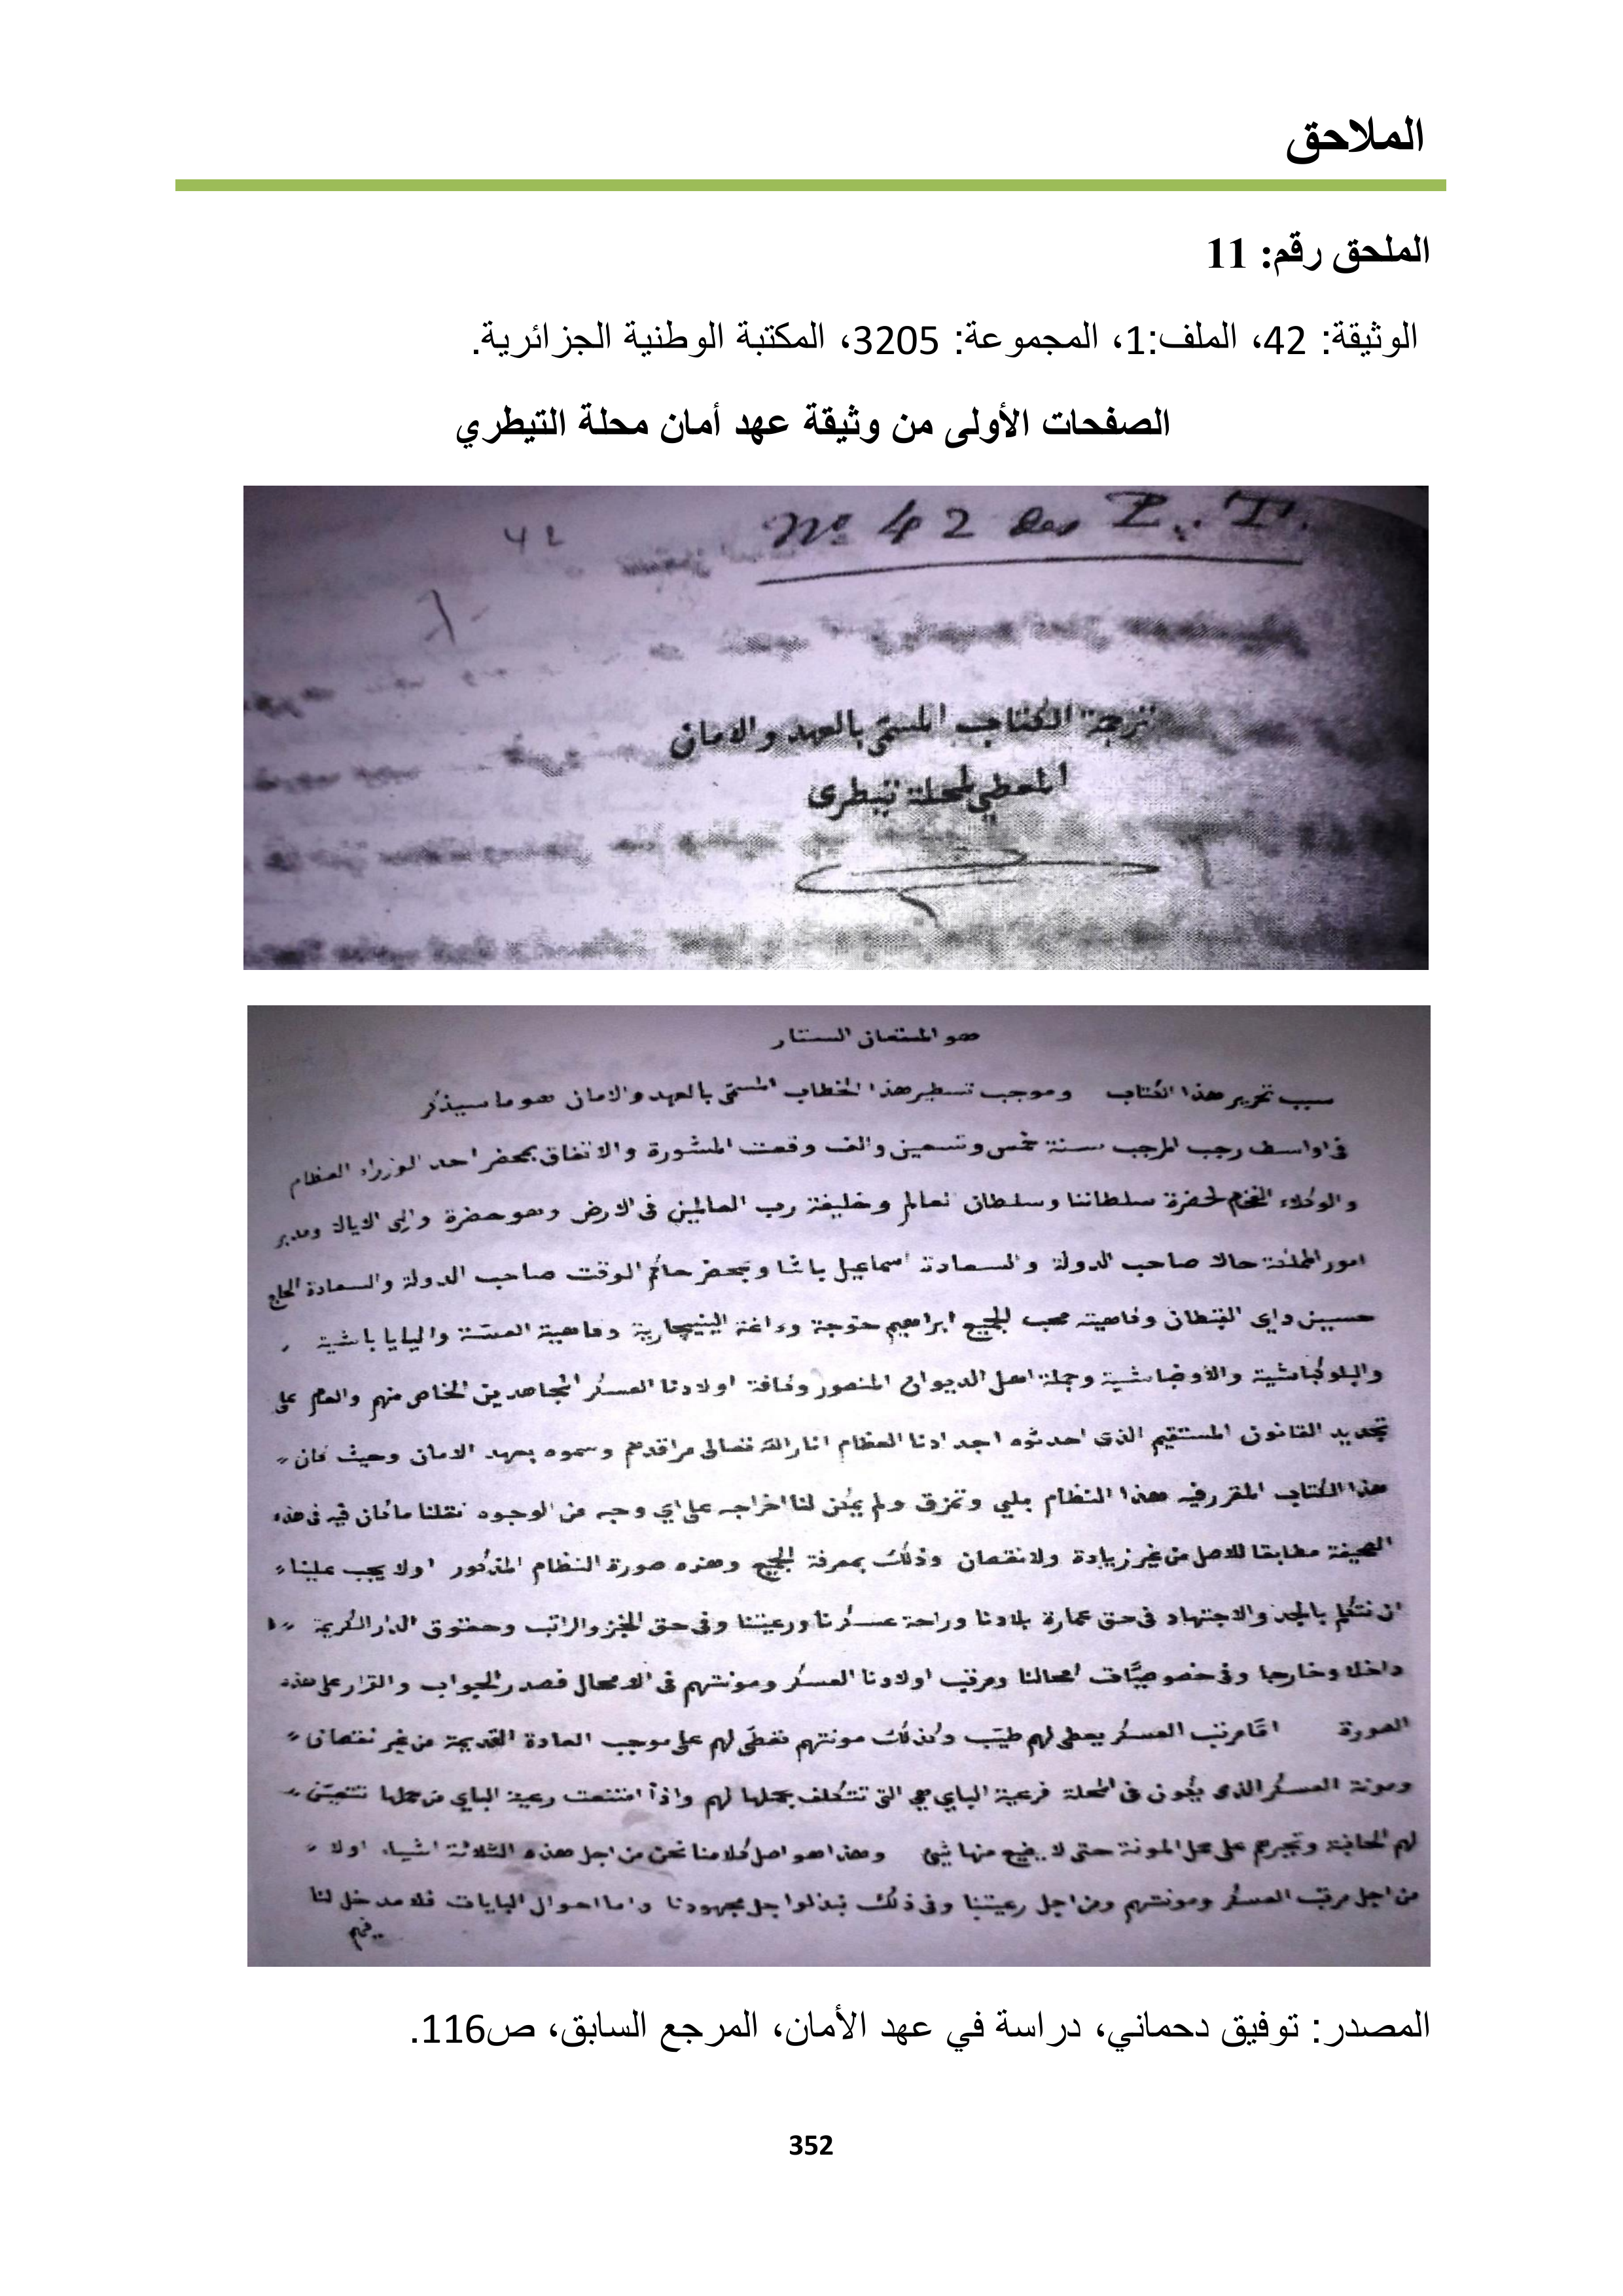 الملاحق
الملحق رقم: 11
الوثيقة: 42، الملف:1، المجموعة: 3205، المكتبة الوطنية الجزائرية.
الصفحات الأولى من وثيقة عهد أمان محلة التيطري
42
Nº 42 des
ترجمة الكتاب المسمّى بالعهد والامان
المعطي لمحلة تيطرى
هو المستعان الستار
سبب تحرير هذا الكتاب وموجب تسطير هذا الخطاب المسمّى بالعهد والامان هو ما سيذكر
فى اواسف رجب المرجب سنة خمس وتسعين والف وقعت المشورة والاتفاق بمحضر احد الوزراء العظام
والوكلاء الفخم لحضرة سلطاننا وسلطان نعالم وخليفة رب العالمين فى الارض وهو حضرة والى الايالة ومدبر
امور المملكة حالا صاحب الدولة والسعادة اسماعيل باشا وبمحضر حاكم الوقت صاحب الدولة والسعادة الحاج
حسين داي القبطان وفاهيته محب الجميع ابراهيم خوجة وءاغة الينيچارية وفاهية العسّة واليايا باشية
والبلوكباشية والاوضاباشية وجملة اهل الديوان المنصور وكافة اولادنا العسكر المجاهدين الخاص منهم والعام على
تجديد القانون المستقيم الذى احدثوه اجدادنا العظام انار الله تعالى مراقدهم وسموه بعهد الامان وحيث كان
هذا الكتاب المقرر فيه هذا النظام بلي وتمزق ولم يمكن لنا اخراجه على اي وجه من الوجوه نقلنا ما كان فيه فى هذه
الصحيفة مطابقا للاصل من غير زيادة ولا نقصان وذلك بمعرفة الجميع وهذه صورة النظام المذكور اولا يجب علينا
ان نتكلم بالجد والاجتهاد فى حق عمارة بلادنا وراحة عسكرنا ورعيتنا وفى حق الخبز والراتب وحقوق الدار الكريمة
داخلا وخارجا وفى خصوصيّات امحالنا ومرتب اولادنا العسكر ومونتهم فى الامحال فصدر الجواب والقرار على هذه
الصورة امّا مرتب العسكر يعطى لهم طيّب وكذلك مونتهم تعطى لهم على موجب العادة القديمة من غير نقصان
ومونة العسكر الذى يكون فى المحلة فرعية الباي هي التى تتكلف بحملها لهم واذا امتنعت رعية الباي من حملها تتعيّن
لهم الحانبة وتجبرهم على حمل المونة حتى لا يضيع منها شئ وهذا هو اصل كلامنا نحن من اجل هذه الثلاثة اشياء اولا
من اجل مرتب العسكر ومونتهم ومن اجل رعيتنا وفى ذلك نبذلوا جل مجهودنا واما احوال البايات فلا مدخل لنا
فيهم
المصدر: توفيق دحماني، دراسة في عهد الأمان، المرجع السابق، ص116.
352